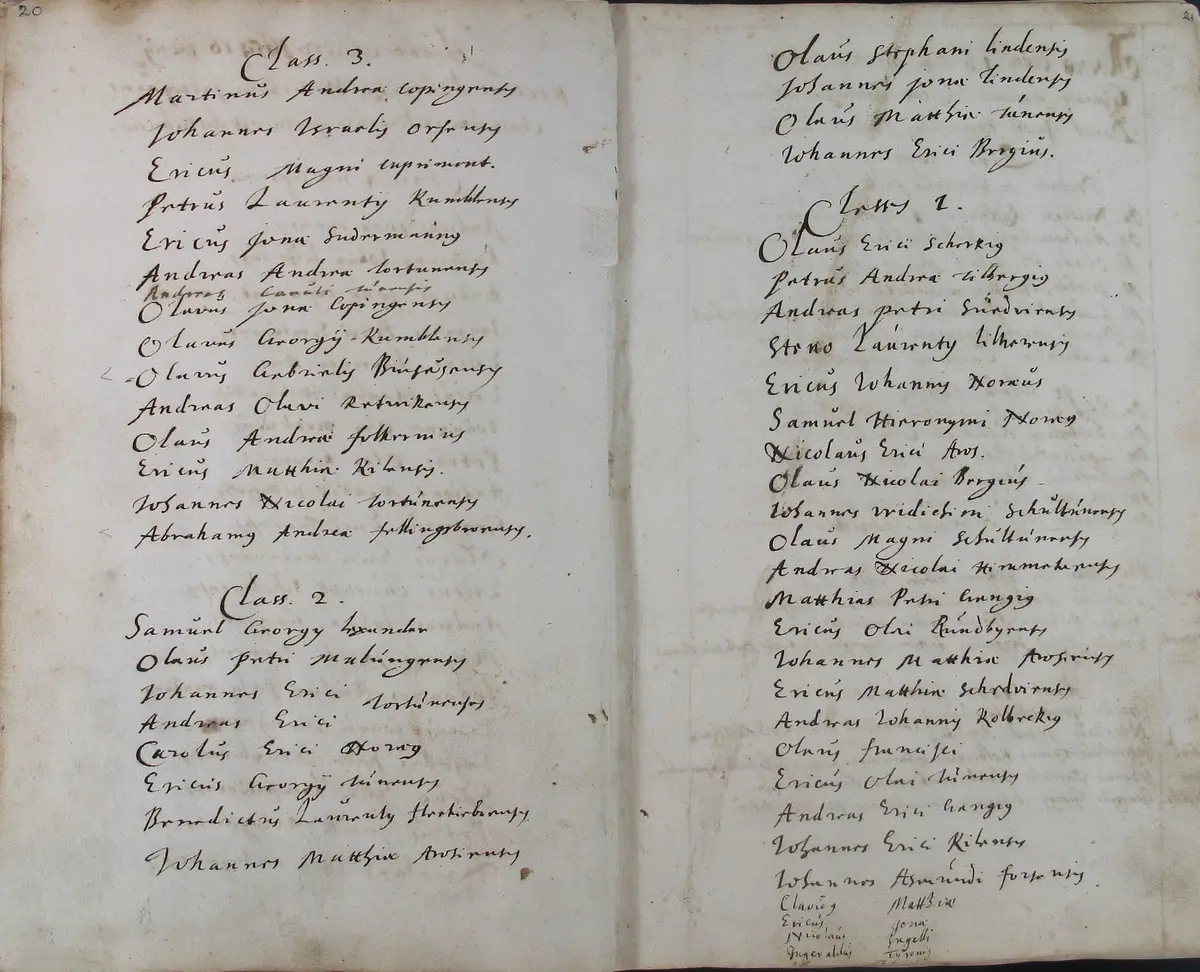 20
Class. 3.
Martinus Andreæ Copingensis
Johannes Israelis Orsensis
Ericus Magni cuprimont.
Petrus Laurentij Rumblensis
Ericus Jonæ Sudermannus
Andreas Andreæ tortunensis
Andreas Canuti tunensis
Olavus Jonæ Copingensis
Olavus Georgij Rumblensis
Olavus Gabrielis
Andreas Olavi Retwikensis
Olaus Andreæ folkernius
Ericus Matthiæ Kilensis.
Johannes Nicolai tortúnensis
Abrahamus Andreæ fellingsbroensis.
Class. 2.
Samuel Georgij
Olaus Petri Malúngensis
Johannes Erici
tortúnenses
Andreas Erici
Carolus Erici Noræus
Ericus Georgij túnensis
Benedictus Laurentij
Johannes Matthiæ Arosiensis
Olaus Stephani lindensis
Johannes Jonæ Lindensis
Olaus Matthiæ túnensis
Johannes Erici Bergius.
Classis 1.
Olaus Erici
Petrus Andreæ
Andreas Petri
Steno Laurentij
Ericus Johannis Noræus
Samuel Hieronymi Noræus
Nicolaus Erici Aros.
Olaus Nicolai Bergius
Johannes Schultúnensis
Olaus Magni Schultúnensis
Andreas Nicolai
Matthias Petri Gangius
Ericus Olai
Johannes Matthiæ Arosiensis
Ericus Matthiæ Schedviensis
Andreas Johannis Kolbeckius
Olaus francisci
Ericus Olai túnensis
Andreas Erici Gangius
Johannes Erici Kilensis
Johannes Asmundi forsensis
Matthiæ
Ericus Jonæ
Nicolaus Ingelli
Ingevaldus